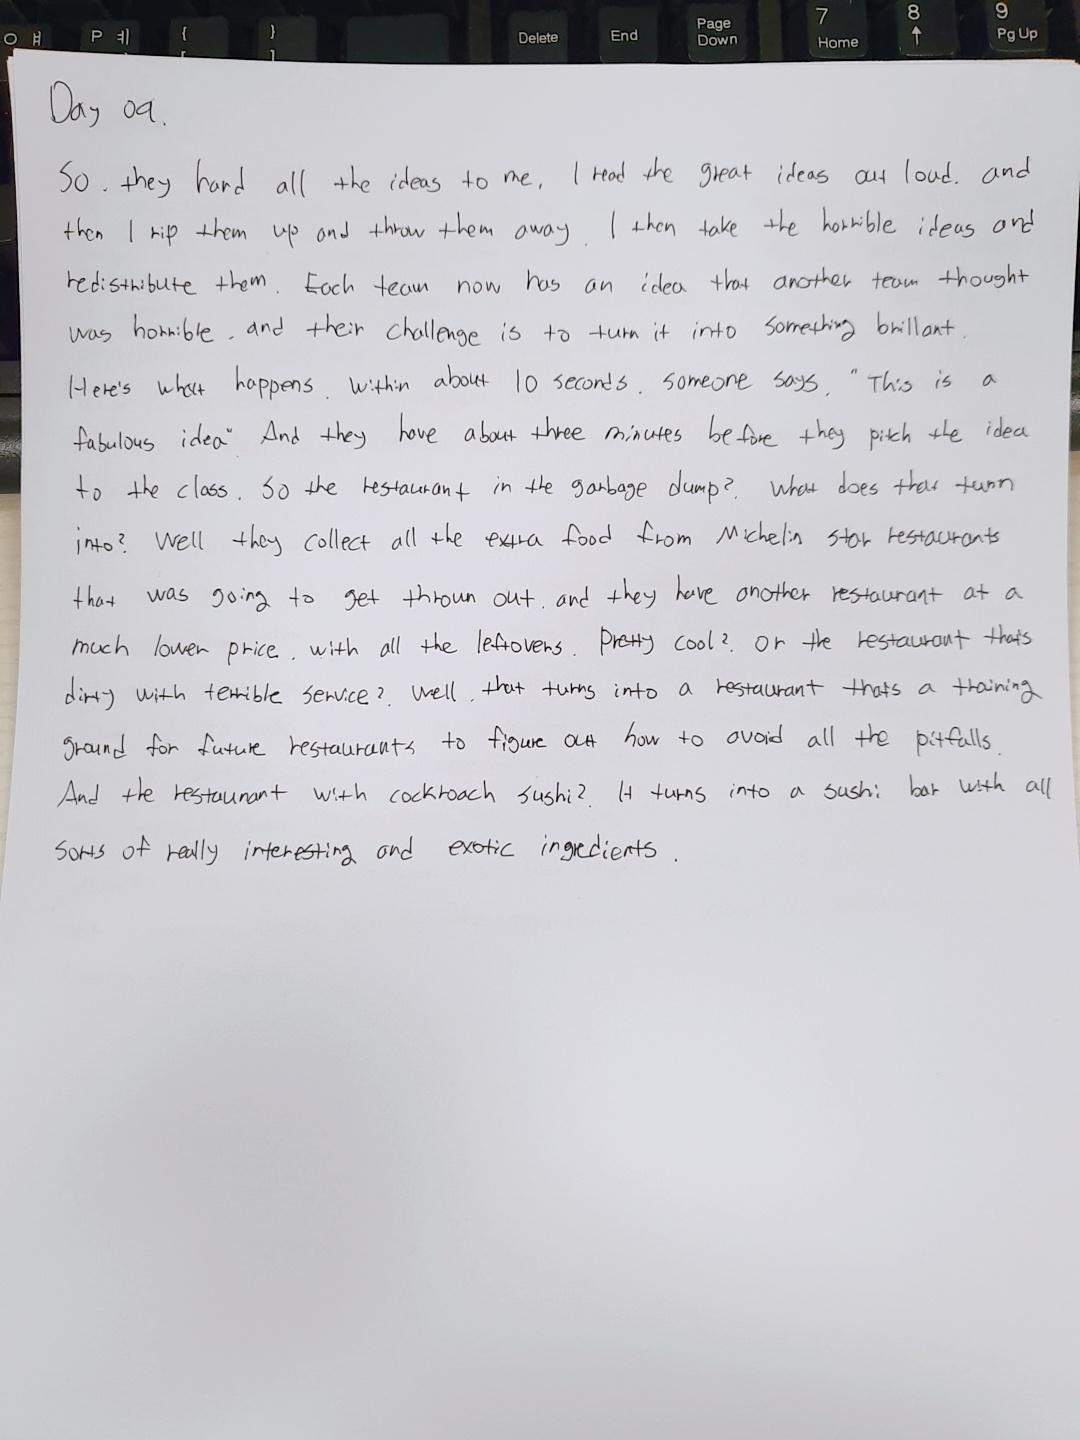 ㅇ ㅐ P ㅔ { [ } ] Delete End Page Down 7 Home 8 ↑ 9 Pg Up
Day 09.
So. they hand all the ideas to me, I read the great ideas out loud. and
then I rip them up and throw them away. I then take the horrible ideas and
redistribute them. Each team now has an idea that another team thought
was horrible. and their challenge is to turn it into something brillant.
Here's what happens. Within about 10 seconds. someone says, "This is a
fabulous idea" And they have about three minutes before they pitch the idea
to the class. So the restaurant in the garbage dump?. What does that turn
into? Well they collect all the extra food from Michelin star restaurants
that was going to get thrown out. and they have another restaurant at a
much lower price. with all the leftovers. Pretty cool?. Or the restaurant thats
dirty with terrible service?. Well. that turns into a restaurant thats a training
ground for future restaurants to figure out how to avoid all the pitfalls.
And the restaurant with cockroach sushi?. It turns into a sushi bar with all
sorts of really interesting and exotic ingredients.